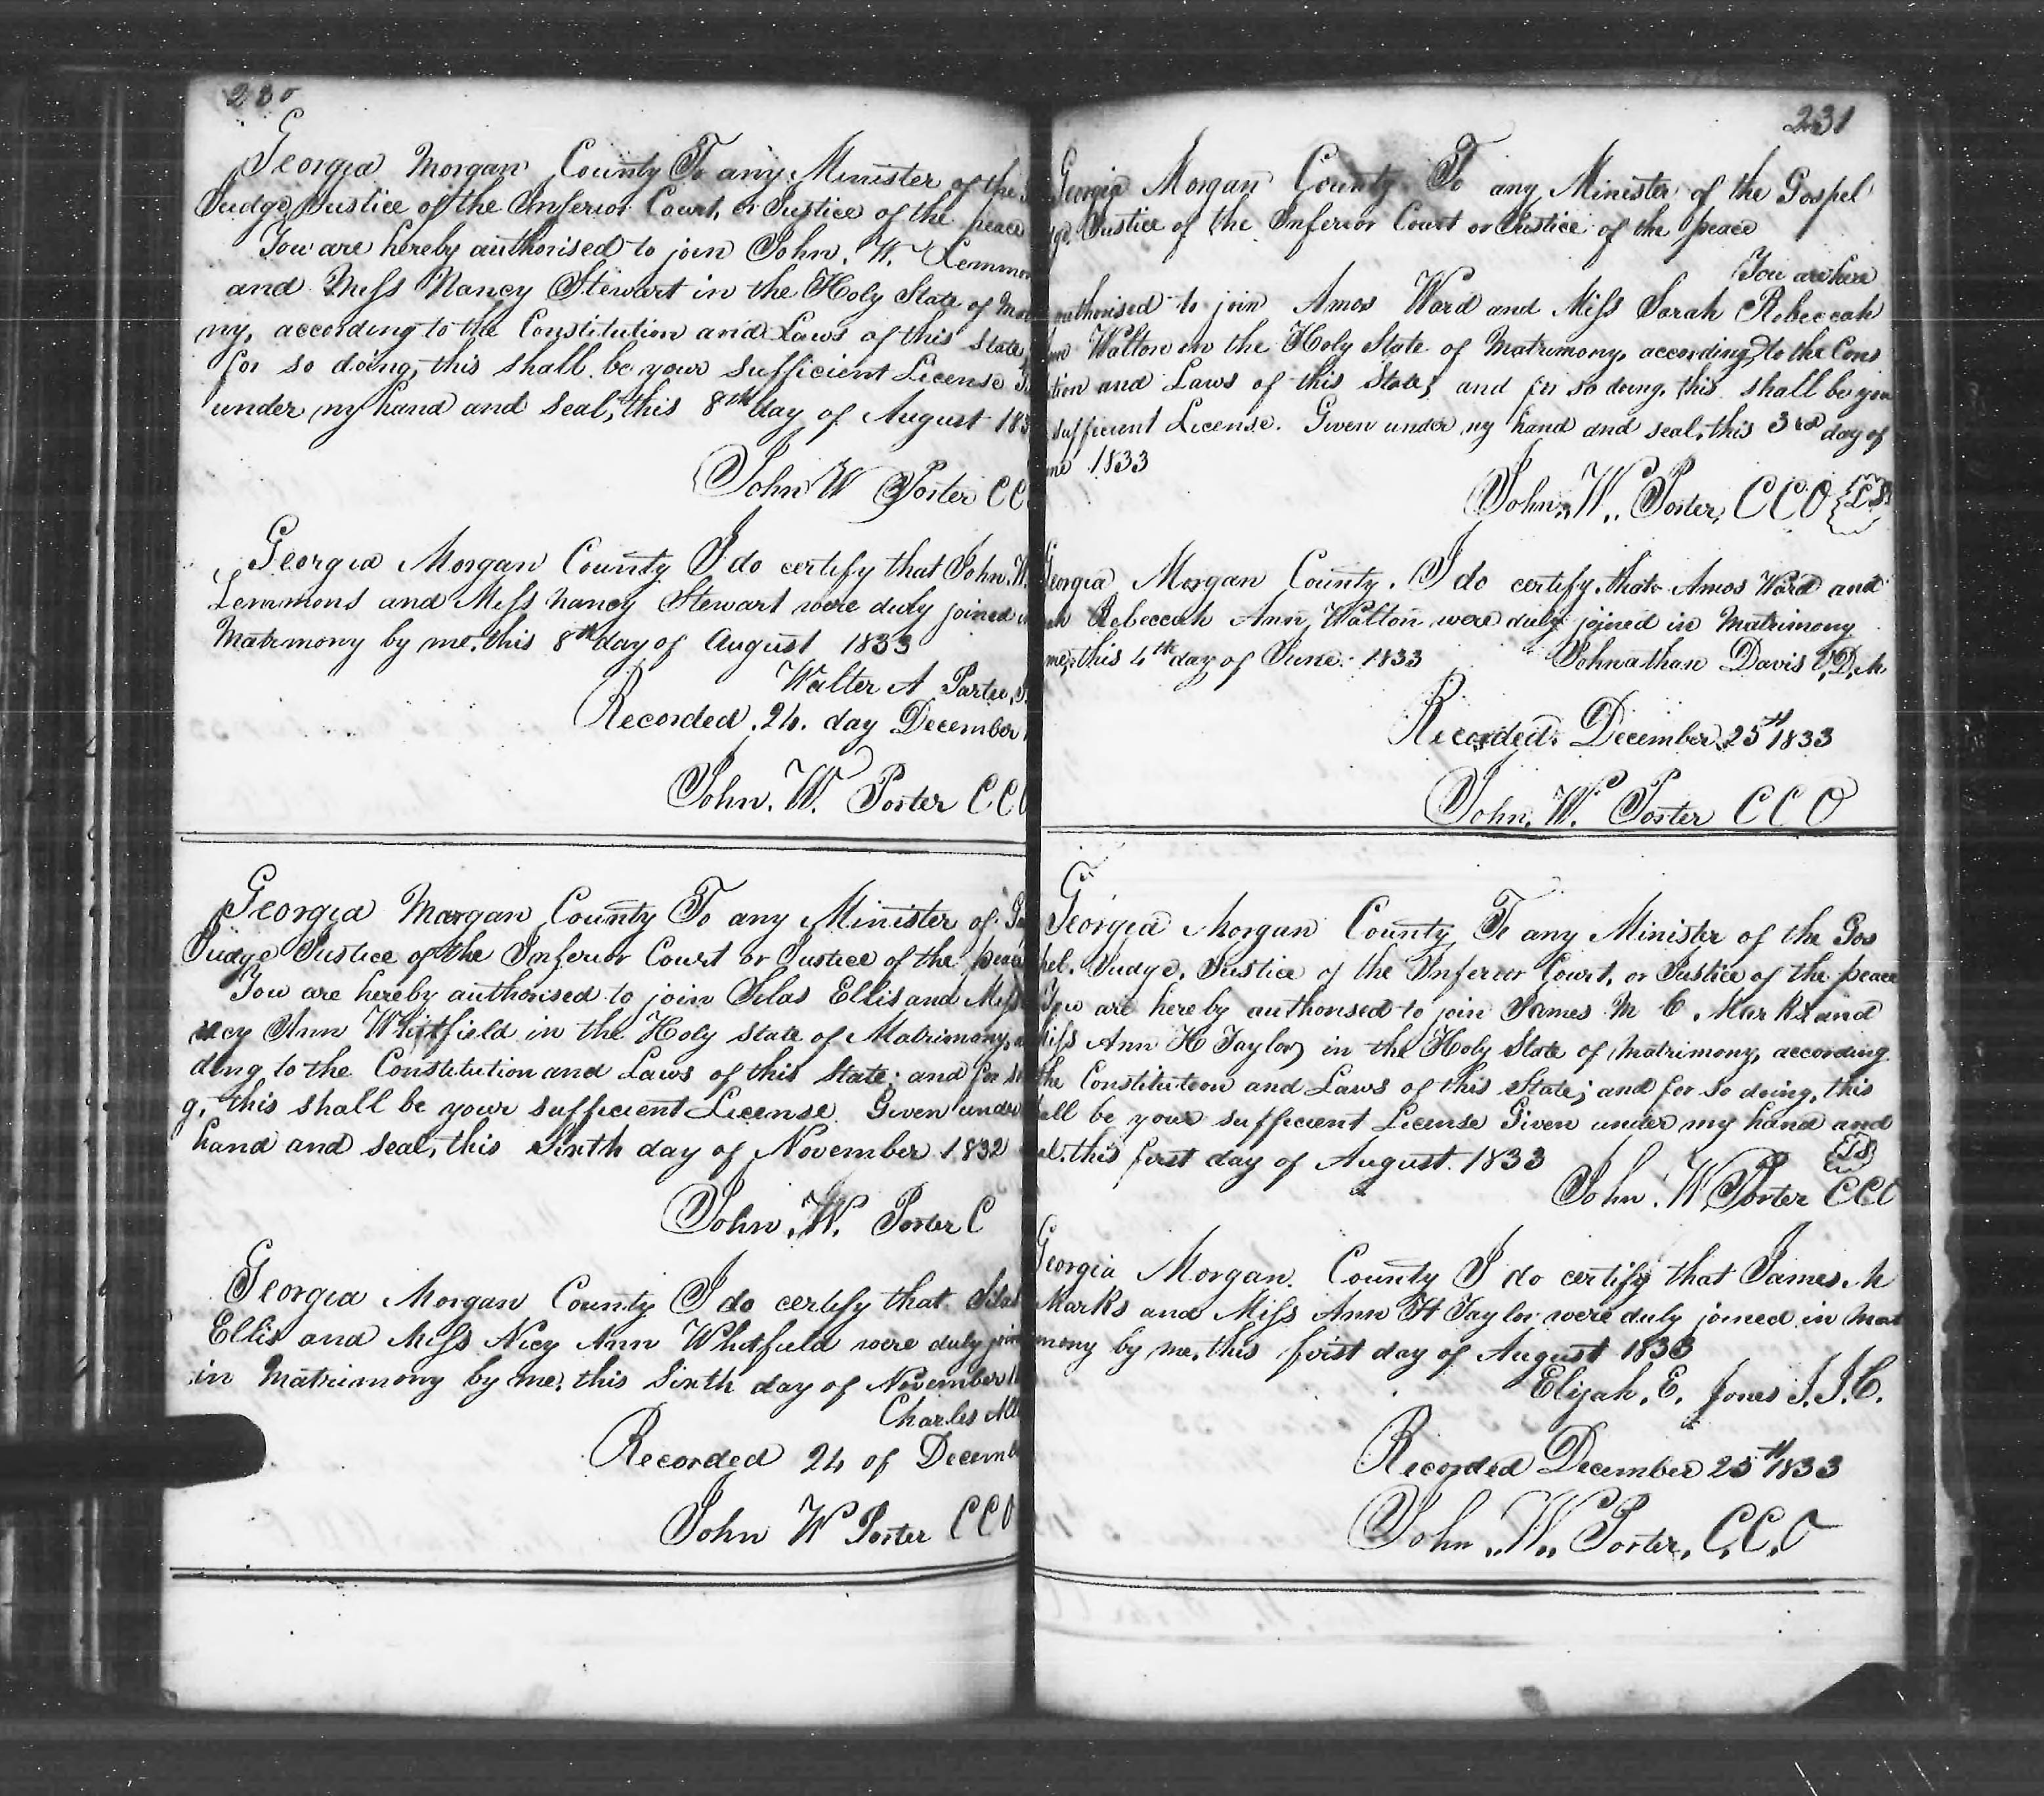 230
Georgia Morgan County To any Minister of the
Judge, Justice of the Inferior Court, or Justice of the peace
You are hereby authorised to join John. W. Lemmon
and Miss Nancy Stewart in the Holy State of Mat
ny, according to the Constitution and Laws of this State
for so doing, this shall be your sufficient License
under my hand and seal, this 8th day of August 183
John W Porter CC
Georgia Morgan County I do certify that John. W.
Lemmons and Miss Nancy Stewart were duly joined in
Matrimony by me, this 8th day of August 1833
Walter A Partee,
Recorded. 24. day December
John. W. Porter CCO
Georgia Morgan County To any Minister of
Judge Justice of the Inferior Court or Justice of the peace
You are hereby authorised to join Silas Ellis and Miss
Nicy Ann Whitfield in the Holy State of Matrimony,
ding to the Constitution and Laws of this State; and for so
g, this shall be your sufficient License Given under
hand and seal, this Sixth day of November 1832
John. W. Porter C
Georgia Morgan County I do certify that Silas
Ellis and Miss Nicy Ann Whitfield were duly join
in Matrimony by me, this Sixth day of November
Charles
Recorded 24 of Decemb
John W Porter CCO
231
Georgia Morgan County To any Minister of the Gospel
ge, Justice of the Inferior Court or Justice of the peace
You are here
authorised to join Amos Ward and Miss Sarah Rebeccah
Ann Walton in the Holy State of Matrimony, according to the Cons
tution and Laws of this State; and for so doing, this shall be your
sufficient License. Given under my hand and seal, this 3rd day of
ne 1833
John. W. Porter, CCO LS
Georgia Morgan County. I do certify, that Amos Ward and
ah Rebeccah Ann Walton were duly joined in Matrimony
me, this 4th day of June. 1833 Johnathan Davis V.D.M
Recorded. December 25th 1833
John. W. Porter CCO
Georgia Morgan County To any Minister of the Gos
pel. Judge, Justice of the Inferior Court, or Justice of the peace
You are hereby authorised to join James M C. Marks and
Miss Ann H Taylor in the Holy State of Matrimony, according
the Constitution and Laws of this State; and for so doing, this
hall be your sufficient License Given under my hand and
eal, this first day of August. 1833 LS
John. W. Porter CCO
Georgia Morgan. County I do certify that James. M
Marks and Miss Ann H Taylor were duly joined in Mat
mony by me, this first day of August 1833
Elijah. E. Jones J.I.C.
Recorded December 25th 1833
John. W. Porter, C.C.O